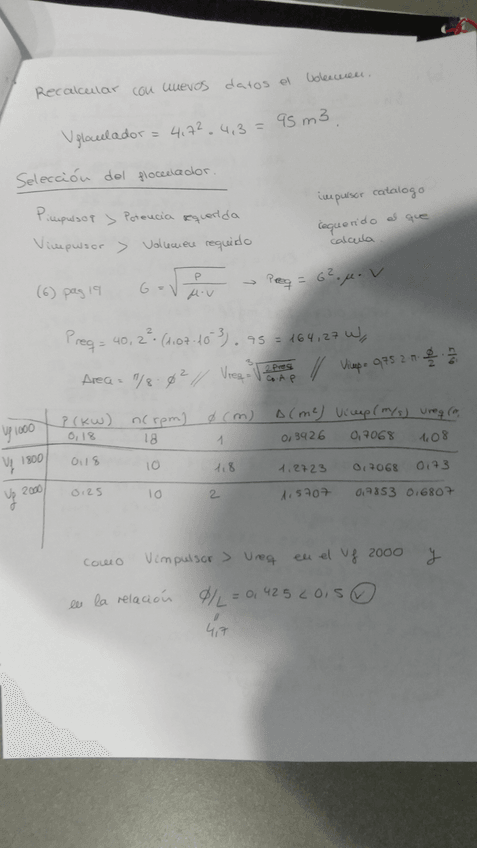 Recalcular con nuevos datos el volumen.
Vfloculador = 4,7² · 4,3 = 95 m³.
Selección del floculador.
Pimpulsor > Potencia requerida
impulsor catalogo
Vimpulsor > Volumen requido
requerido el que calcula.
(6) pag 19 G = √(P/μ·v) → Preq = G² · μ · V
Preq = 40,2² · (1,07·10⁻³) · 95 = 164,27 W //
Area = π/8 · ϕ² // Vreq = ∛(2Preq/Cd·A·ρ) // Vimp = 0,75·2·π·ϕ/2·n/6
P(KW) n(rpm) ϕ(m) A(m²) Vimp(m/s) Vreq(m
Vf 1000 0,18 18 1 0,3926 0,7068 1,08
Vf 1800 0,18 10 1,8 1,2723 0,7068 0,73
Vf 2000 0,25 10 2 1,5707 0,7853 0,6807
como Vimpulsor > Vreq en el Vf 2000 y
en la relación ϕ/L = 0,425 < 0,5 ✓
4,7